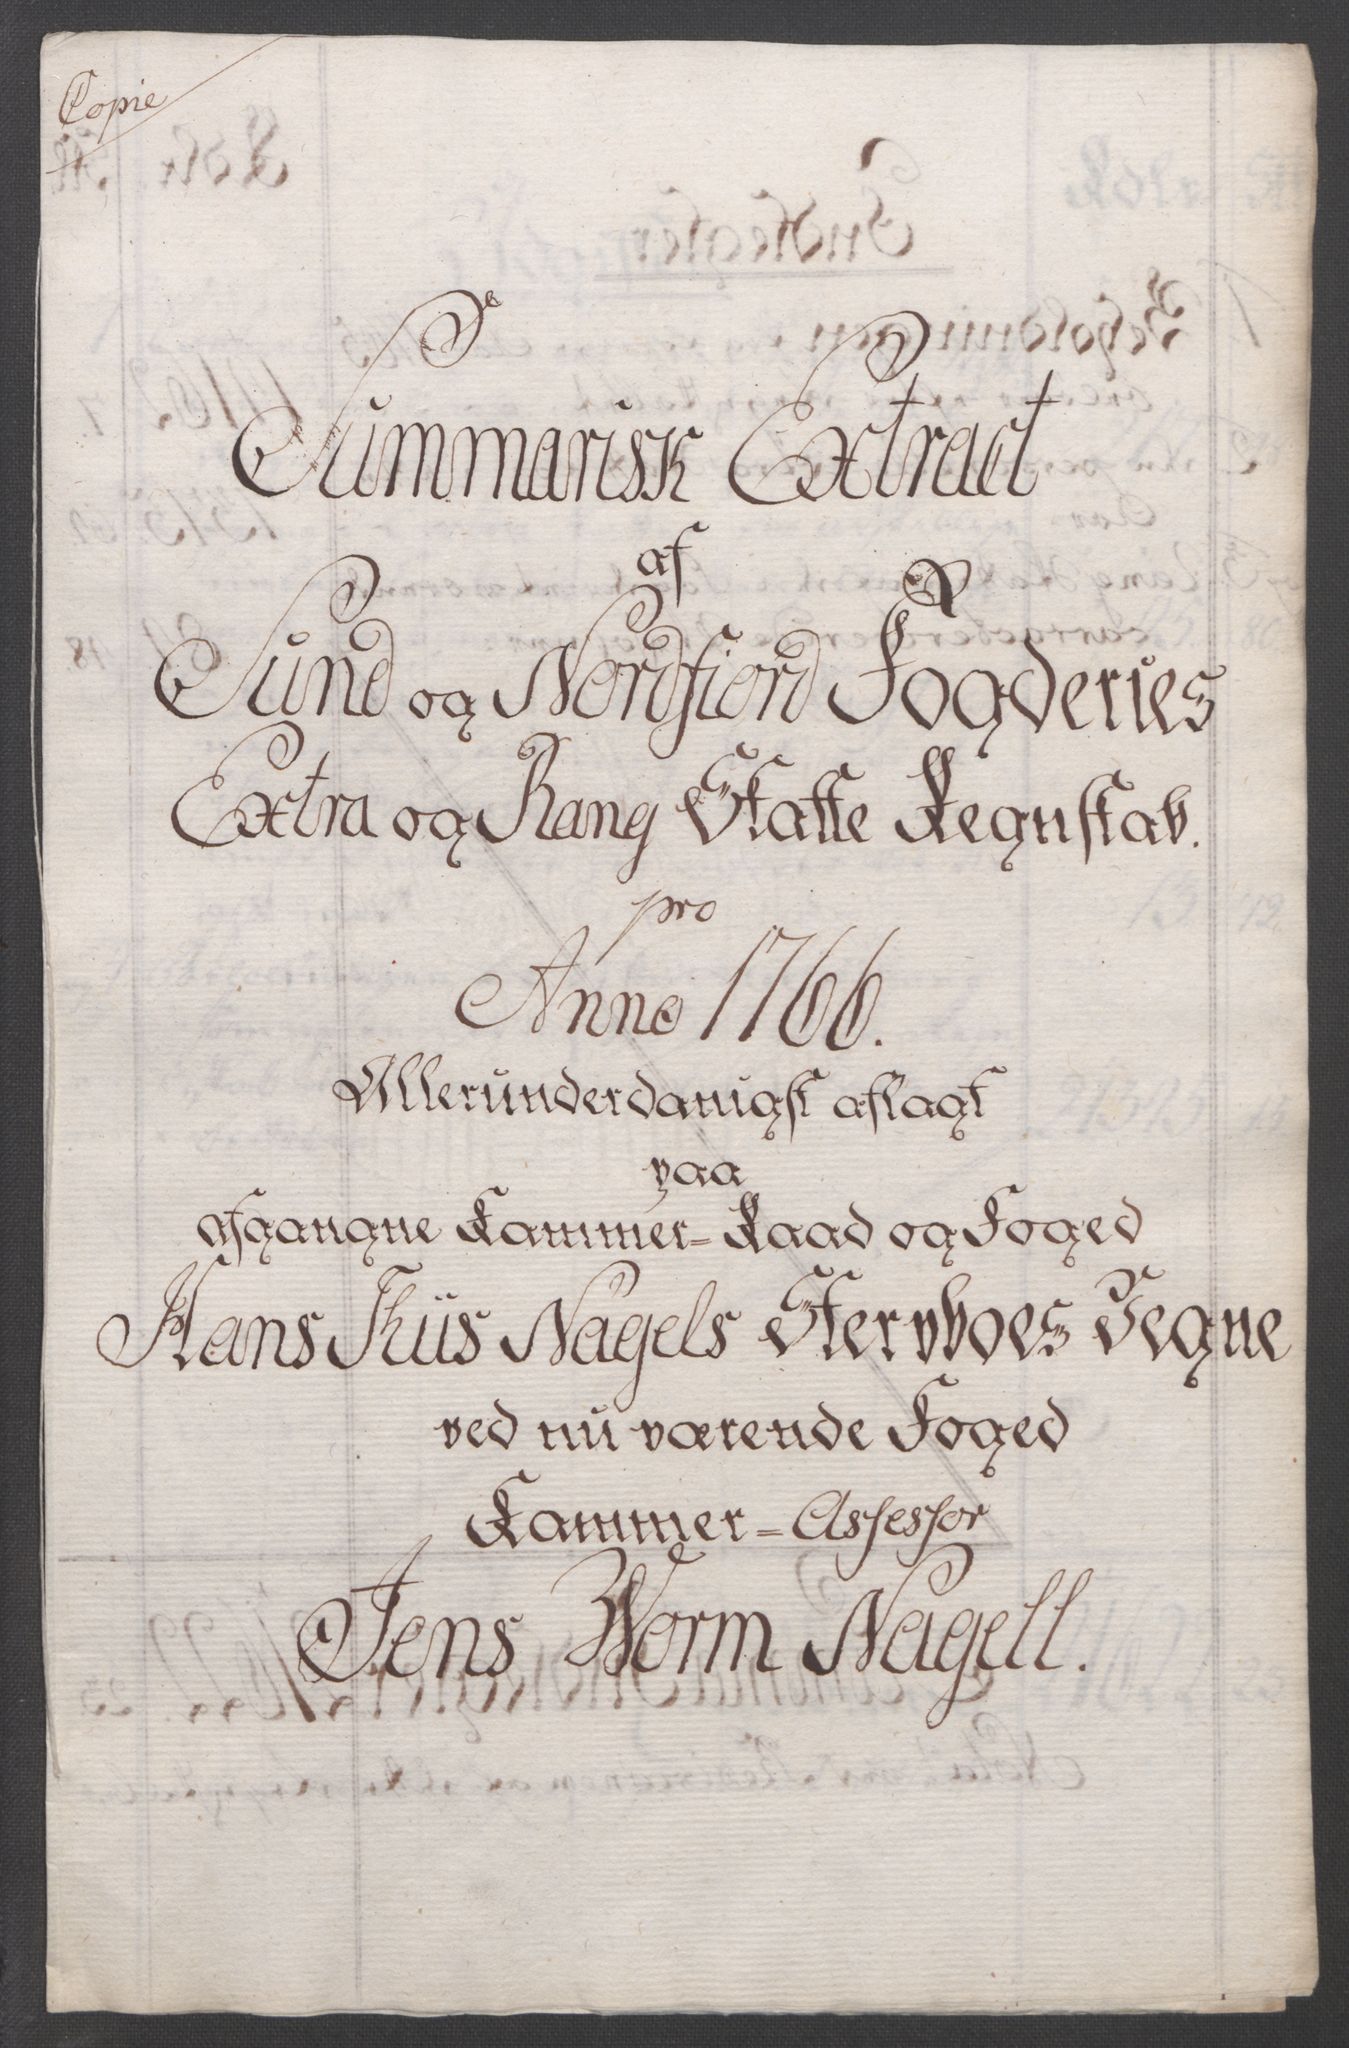 Copie
Summarisk Extract
af
Sund og Nordfiord Fogderies
Extra og Rang Skatte Regnskab.
pro
Anno 1766.
Allerunderdanigst aflagt
paa
afgangne Kammer=Raad og Foged
Hans Thiis Nagels Stervboes Vegne
ved nu værende Foged
Kammer=Assessor
Jens Worm Nagell.